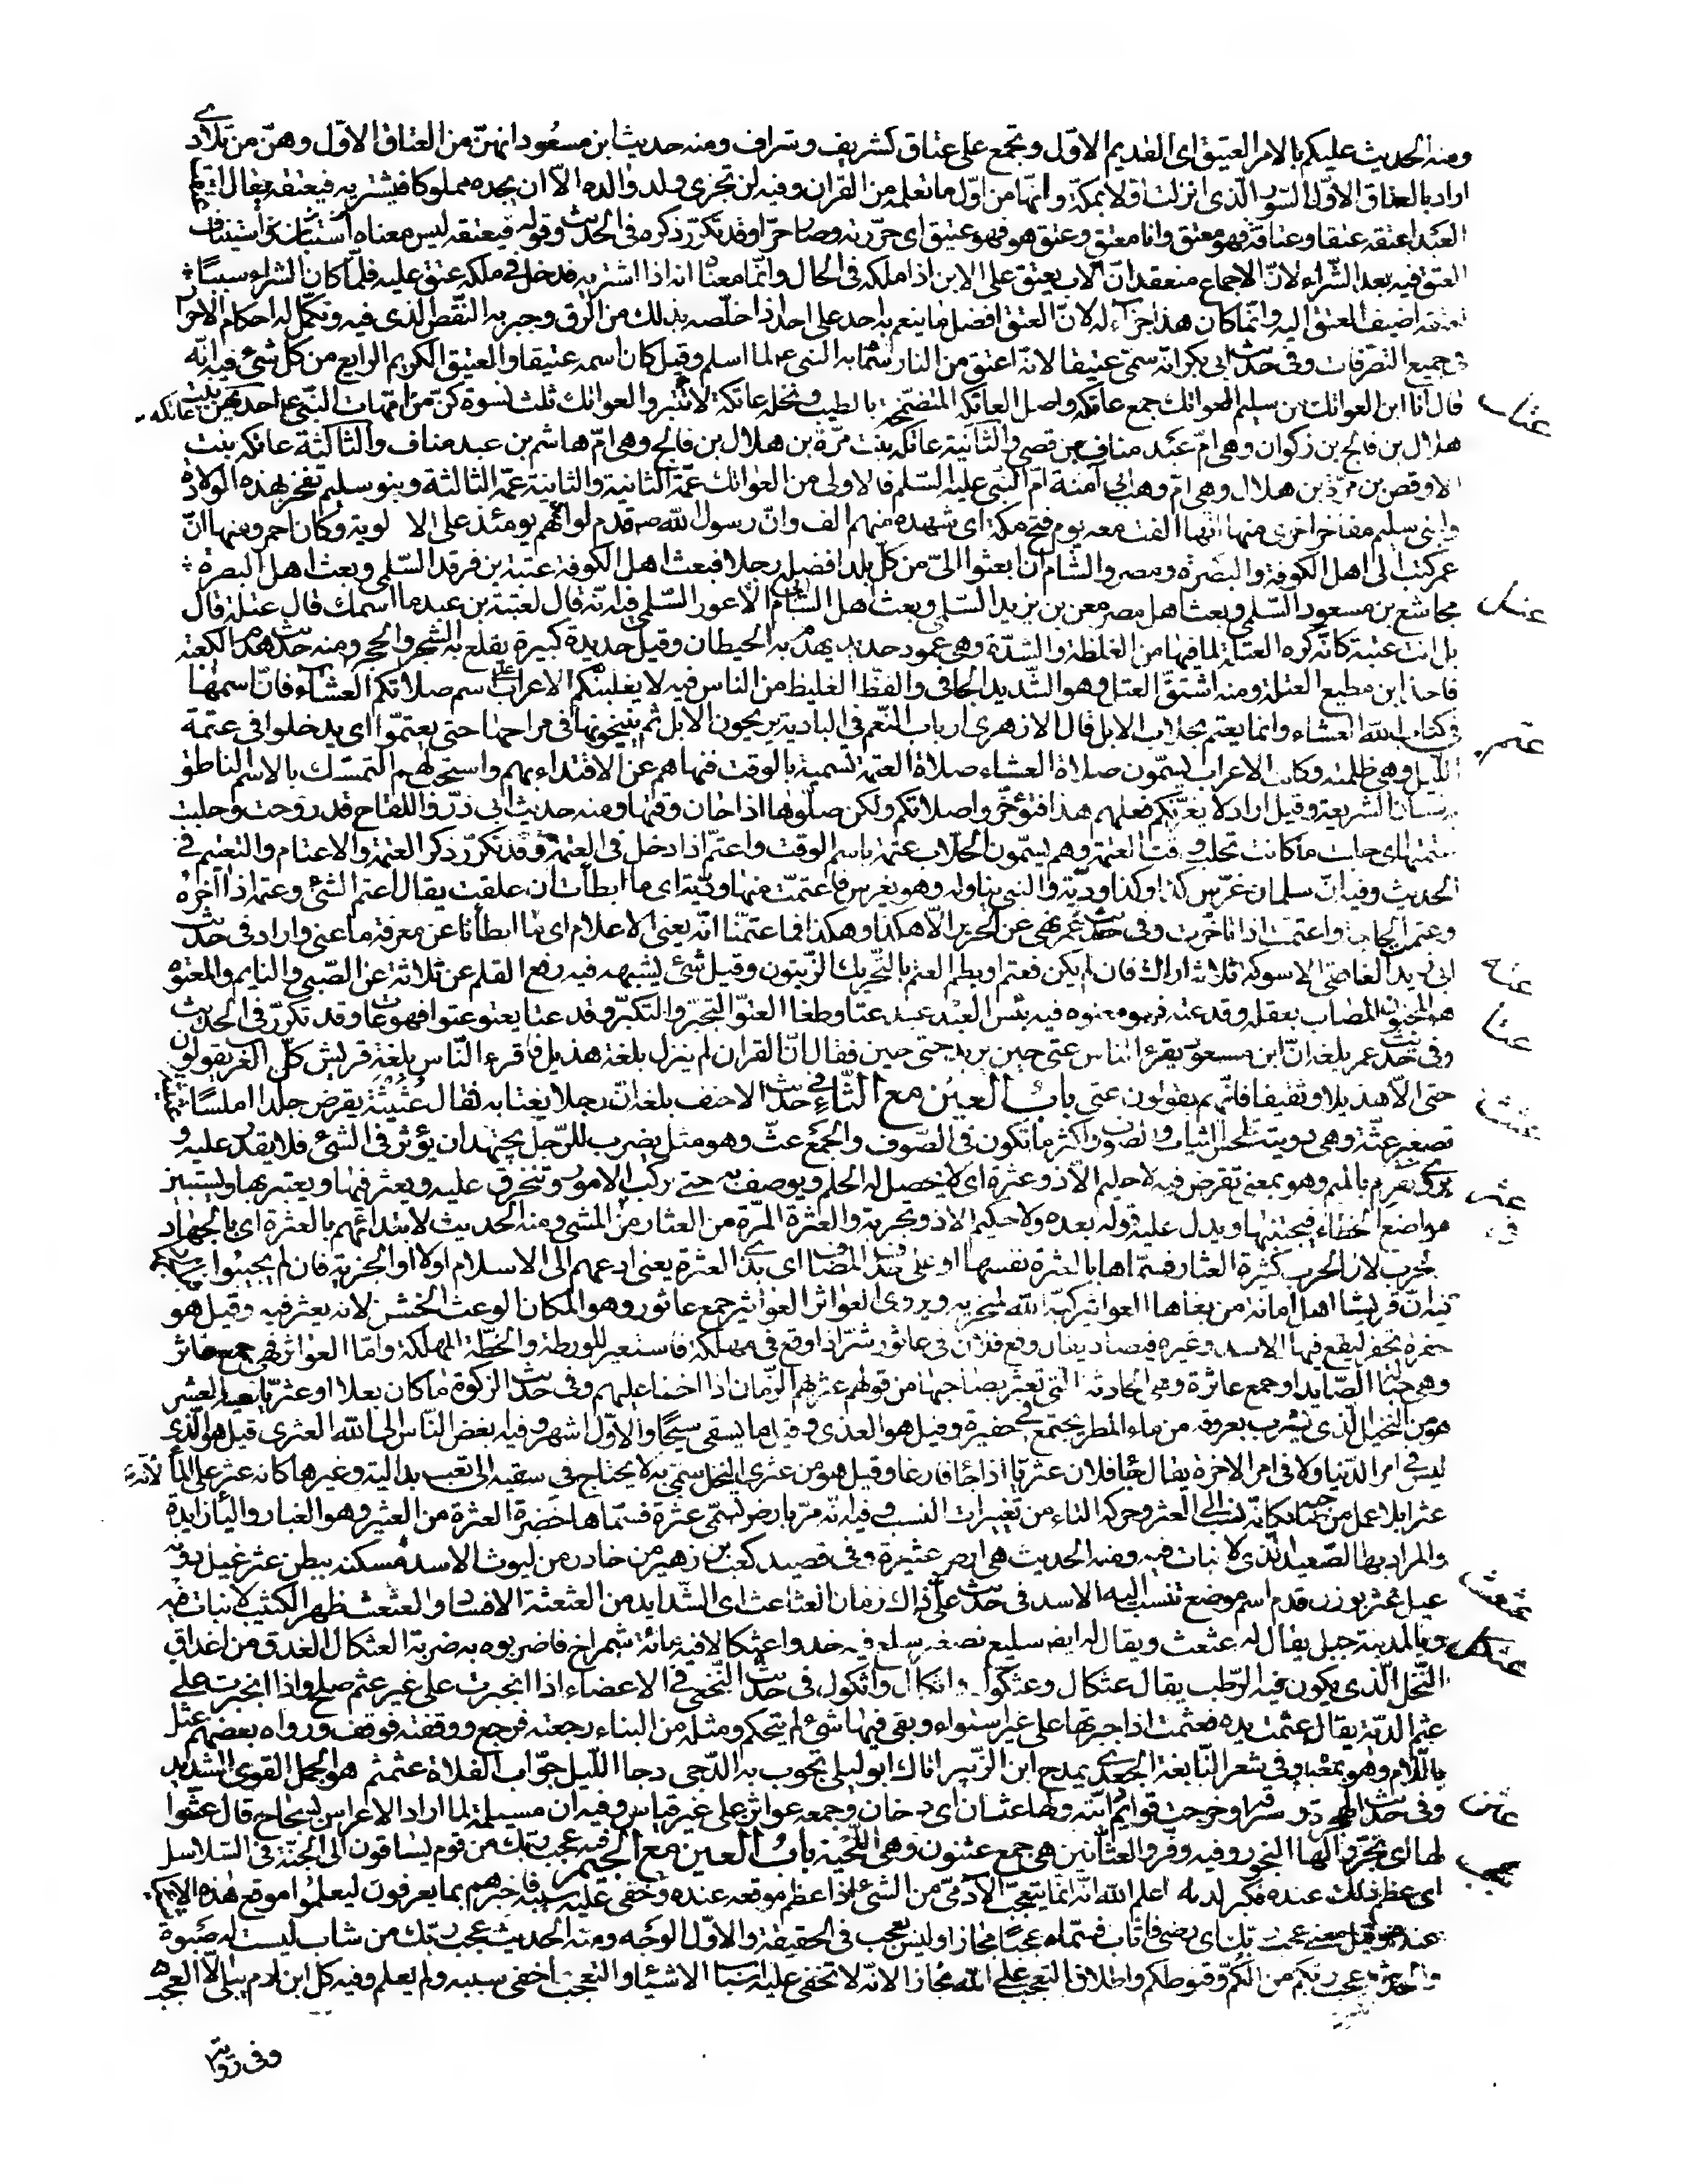 ومنه الحديث عليكم بالامر العتيق اى القديم الاوّل وتجمع على عتاق كشريف وشراف ومنه حديث ابن مسعود انهنّ من العتاق الاوّل وهنّ من تلادى
اراد بالعتاق الاوّل السّور الّذى انزلت اوّلا بمكّة وانّها من اوّل ما تعلمه من القران وفيه لن تجزى ولد والده الاّ ان يجده مملوكا فيشتريه فيعتقه يقال اعتق
العبد اعتقه عتقا وعتاقة فهو معتق وانا معتق وعتق هو فهو عتيق اى حرّرته وصار حرّا وقد تكرّر ذكره فى الحديث وقوله فيعتقه ليس معناه استيناف
العتق فيه بعد الشّراء لانّ الاجماع منعقد انّ الاب يعتق على الابن اذا ملكه فى الحال وانّما معناه انه اذا اشتريه فدخل فى ملكه عتق عليه فلمّا كان الشراء سببا
لعتقه اضيف العتق اليه وانّما كان هذا جزاء له لانّ العتق افضل ما ينعم به احد على احد اذا خلّصه بذلك من الرّق وجبر به النّقص الذى فيه وتكمّل له احكام الاحرار
فى جميع التصرفات وفى حديث ابى بكر انّه سمّى عتيقا لانّه اعتق من النار سمّاه به النبى ع لما اسلم وقيل كان اسمه عتيقا والعتيق الكريم الرايع من كل شئ فيه انّه
عتك
قال انا ابن العواتك من سليم العواتك جمع عاتكة واصل العاتكة المتضمّخة بالطيب ونخلة عاتكة لا تأتبر والعواتك ثلث نسوة كنّ من امّهات النبىّ ع احديهنّ عاتكة بنت
هلال بن فالج بن زكوان وهى امّ عبد مناف بن قصى والثانية عاتكة بنت مرّة بن هلال بن فالج وهى امّ هاشم بن عبد مناف والثالثة عاتكة بنت
الاوقص بن مرّة بن هلال وهى امّ وهب ابى آمنة امّ النبى عليه السّلم فالاولى من العواتك عمّة الثانية والثانية عمّة الثالثة وبنو سليم تفخر بهذه الولادة
ولبنى سليم مفاخر اخرى منها انّها الفت معه يوم فتح مكة اى شهده منهم الف وانّ رسول الله ص قدم لواءهم يومئذ على الالوية وكان احمر ومنها انّ
عمر كتب الى اهل الكوفة والبصرة ومصر والشام ان ابعثوا الىّ من كل بلد افضله رجلا فبعث اهل الكوفة عتبة بن فرقد السّلمى وبعث اهل البصرة
عتل
مجاشع بن مسعود السّلمى وبعث اهل مصر معن بن يزيد السّلمى وبعث اهل الشام ابا الاعور السّلمى فيه انّه قال لعتبة بن عبد ما اسمك قال عتلة قال
بل انت عتبة كانّه كره العتلة لما فيها من الغلظة والشدّة وهى عمود حديد يهدم به الحيطان وقيل حديدة كبيرة يقلع به الشجر والحجر ومنه حديث هدم الكعبة
فاخذ ابن مطيع العتلة ومنه اشتقّ العتل وهو الشّديد الجافى والفظّ الغليظ من الناس فيه لا يغلبنّكم الاعراب على اسم صلاتكم العشاء فانّ اسمها
عتم
فى كتاب الله العشاء وانما يعتم بحلاب الابل قال الازهرى ارباب النّعم فى البادية يريحون الابل ثم ينيخونها فى مراحها حتى يعتمّوا اى يدخلوا فى عتمة
اللّيل وهى ظلمته وكانت الاعراب يسمّون صلاة العشاء صلاة العتمة تسمية بالوقت فنهاهم عن الاقتداء بهم واستحبّ لهم التمسّك بالاسم الناطق
به لسان الشريعة وقيل اراد لا يغرّنّكم فعلهم هذا فتؤخّروا صلاتكم ولكن صلّوها اذا حان وقتها ومنه حديث ابى ذرّ واللقاح قد روّحت وحلبت
عتمتها اى حلبت ما كانت تحلب وقت العتمة وهم يسمّون الحلاب عتمة باسم الوقت واعتمّ اذا دخل فى العتمة وقد تكرّر ذكر العتمة والاعتام والتعتيم فى
الحديث وفيه انّ سلمان غرس كذا وكذا وديّة والنبى يناوله وهو يغرس فما عتمت منها وديّة اى ما ابطأت ان علقت يقال اعتم الشئ وعتمه اذا اخّره
وعتمت الحاجة واعتمت اذا تاخّرت وفى حديث عمر نهى عن الحرير الاّ هكذا وهكذا فما عتمنا انّه يعنى الاعلام اى ما ابطأنا عن معرفة ما عنى واراد فى حديث
عته
ابى زيد الغافقى الاسوكة ثلاثة اراك فان لم يكن فعتم او بطم العتم بالتّحريك الزّيتون وقيل شئ يشبهه فيه رفع القلم عن ثلاثة عن الصّبى والنايم والمعتوه
عتا
هو المجنون المصاب بعقله وقد عته فهو معتوه فيه بئس العبد عبد عتا وطغا العتوّ التجبّر والتكبّر وقد عتا يعتو عتوا فهو عات وقد تكرّر فى الحديث
وفى حديث عمر بلغه انّ ابن مسعود يقرء الناس عتى حين يريد حتى حين فقال انّ القران لم ينزل بلغة هذيل فاقرء النّاس بلغة قريش كلّ العرب يقولون
عثث
حتى الاّ هذيلا وثقيفا فانّهم يقولون عتى باب العين مع الثّاء فى حديث الاحنف بلغه انّ رجلا يغتابه فقال عُثَيثَة تقرض جلدا املسا
تصغير عثّة وهى دويبة تلحس الثياب والصوف واكثر ما تكون فى الصّوف والجمع عثّ وهو مثل يضرب للرّجل يجتهد ان يؤثّر فى الشئ فلا يقدر عليه و
عثر
يروى تقرم بالميم وهو بمعنى تقرض فيه لا حليم الاّ ذو عثرة اى لا يحصل له الحلم ويوصف به حتى يركب الامور وتنخرق عليه ويعثر فيها ويعتبر بها ويستبين
مواضع الخطاء فيجتنبها ويدل عليه قوله بعده ولا حكيم الا ذو تجربة والعثرة المرّة من العثار من المشى ومنه الحديث لا تبدائهم بالعثرة اى بالجهاد
والحرب لانّ الحرب كثيرة العثار فسمّاها بالعثرة نفسها او على حذف المضاف اى بذى العثرة يعنى ادعهم الى الاسلام اولا او الجزية فان لم يجيبوا
فيه انّ قريشا اهل امانة من بغاها العواثير كبّه الله لمنخريه ويروى العواثر العواثير جمع عاثور وهو المكان الوعث الخشن لانه يعثر فيه وقيل هو
حفرة تحفر ليقع فيها الاسد وغيره فيصاد يقال وقع فلان فى عاثور شرّ اذا وقع فى مهلكة فاستعير للورطة والخطّة المهلكة وامّا العواثر فهى جمع عاثر
وهى حبالة الصّايد او جمع عاثرة وهى الحادثة التى تعثر بصاحبها من قولهم عثر بهم الزّمان اذا اخنا عليهم وفى حديث الزكوة ما كان بعلا او عثريّا ففيه العشر
هو من النّخيل الّذى يشرب بعروقه من ماء المطر يجتمع فى حفيرة وقيل هو العذى وقيل ما يسقى سيحا والاوّل اشهر وفيه بغض النّاس الى الله العثرى قيل هو الّذى
ليس فى امر الدّنيا ولا فى امر الاخرة يقال جاء فلان عثريّا اذا جاء فارغا وقيل هو من عثرى النخل سمّى به لانه لا يحتاج فى سقيه الى تعب بدالية وغيرها كانه عثر على الماء
عثرا بلا عمل من صاحبه فكانّه نسب الى العثر وحركة الثاء من تغييرات النسب وفيه انّه مرّ بارض تسمّى عثرة فسمّاها خضرة العثرة من العثير وهو الغبار والياء زايدة
والمراد بها الصّعيد الّذى لا نبات فيه ومنه الحديث هى ارض عثيرة وفى قصيد كعب بن زهير من خادر من ليوث الاسد مسكنه ببطن عثّر غيل دونه
عثعث
غيل عثّر بوزن قدّم اسم موضع تنسب اليه الاسد فى حديث علىّ ذاك زمان العثاعث اى الشّدايد من العثعثة الافساد والعثعث ظهر الكثيب لا نبات فيه
عثكل
وبالمدينة جبل يقال له عثعث ويقال له ايض سليع تصغير سلع فيه خذوا عثكالا فيه مائة شمراخ فاضربوه به ضربة العثكال العذق من اعذاق
النّخل الّذى يكون فيه الرّطب يقال عثكال وعثكول واثكال واثكول فى حديث النّخعى فى الاعضاء اذا انجبرت على غير عثم صلح واذا انجبرت على
عثم الدّية يقال عثمت يده فعثمت اذا جبرتها على غير استواء وبقى فيها شئ لم يتحكّم ومثله من البناء رجعته فرجع ووقفته فوقف ورواه بعضهم عثل
باللاّم وهو بمعناه وفى شعر النّابغة الجعدى يمدح ابن الزّبير اتاك ابو ليلى تجوب به الدّجى دجا اللّيل جوّاب الفلاة عثمثم هو الجمل القوى الشّديد
عثن
وفى حديث الهجرة وسراقة وخرجت قوائم دابّته ولها عثان اى دخان وجمعه عواثن على غير قياس وفيه ان مسيلمة لما اراد الاعراس بسجاح قال عثّنوا
عجب
لها اى بخّروا لها البخور وفيه وفّروا العثانين هى جمع عثنون وهى اللّحية باب العين مع الجيم فيه عجب ربّك من قوم يساقون الى الجنّة فى السّلاسل
اى عظم ذلك عنده وكبر لديه اعلم الله انّه انّما يتعجّب الآدمىّ من الشئ اذا عظم موقعه عنده وخفى عليه سببه فاخبرهم بما يعرفون ليعلموا موقع هذه الاشياء
عنده وقيل معنى عجب ربّك اى رضى واثاب فسمّاه عجبا مجازا وليس بعجب فى الحقيقة والاوّل الوجه ومنه الحديث عجب ربّك من شاب ليست له صبوة
والحديث عجب ربّكم من الّكم وقنوطكم واطلاق التعجّب على الله مجاز لانّه لا تخفى عليه اسباب الاشياء والتعجّب ما خفى سببه ولم يعلم وفيه كل ابن ادم يبلى الاّ العجب
وفى رواية